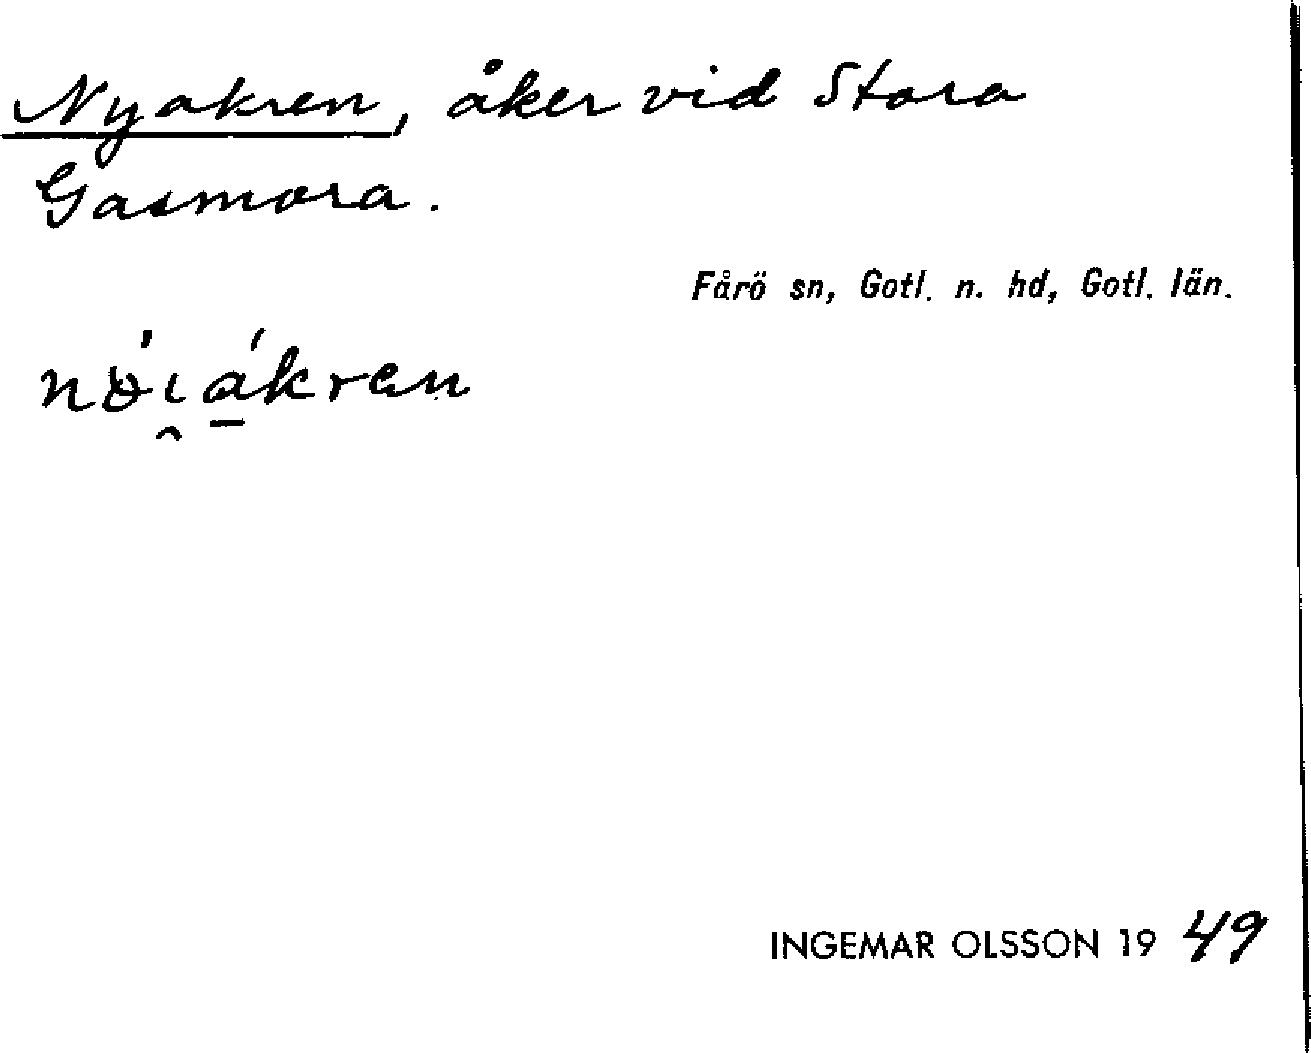 Nyakren, åker vid Stora
Gasmora.
Fårö sn, Gotl. n. hd, Gotl. län.
INGEMAR OLSSON 1949